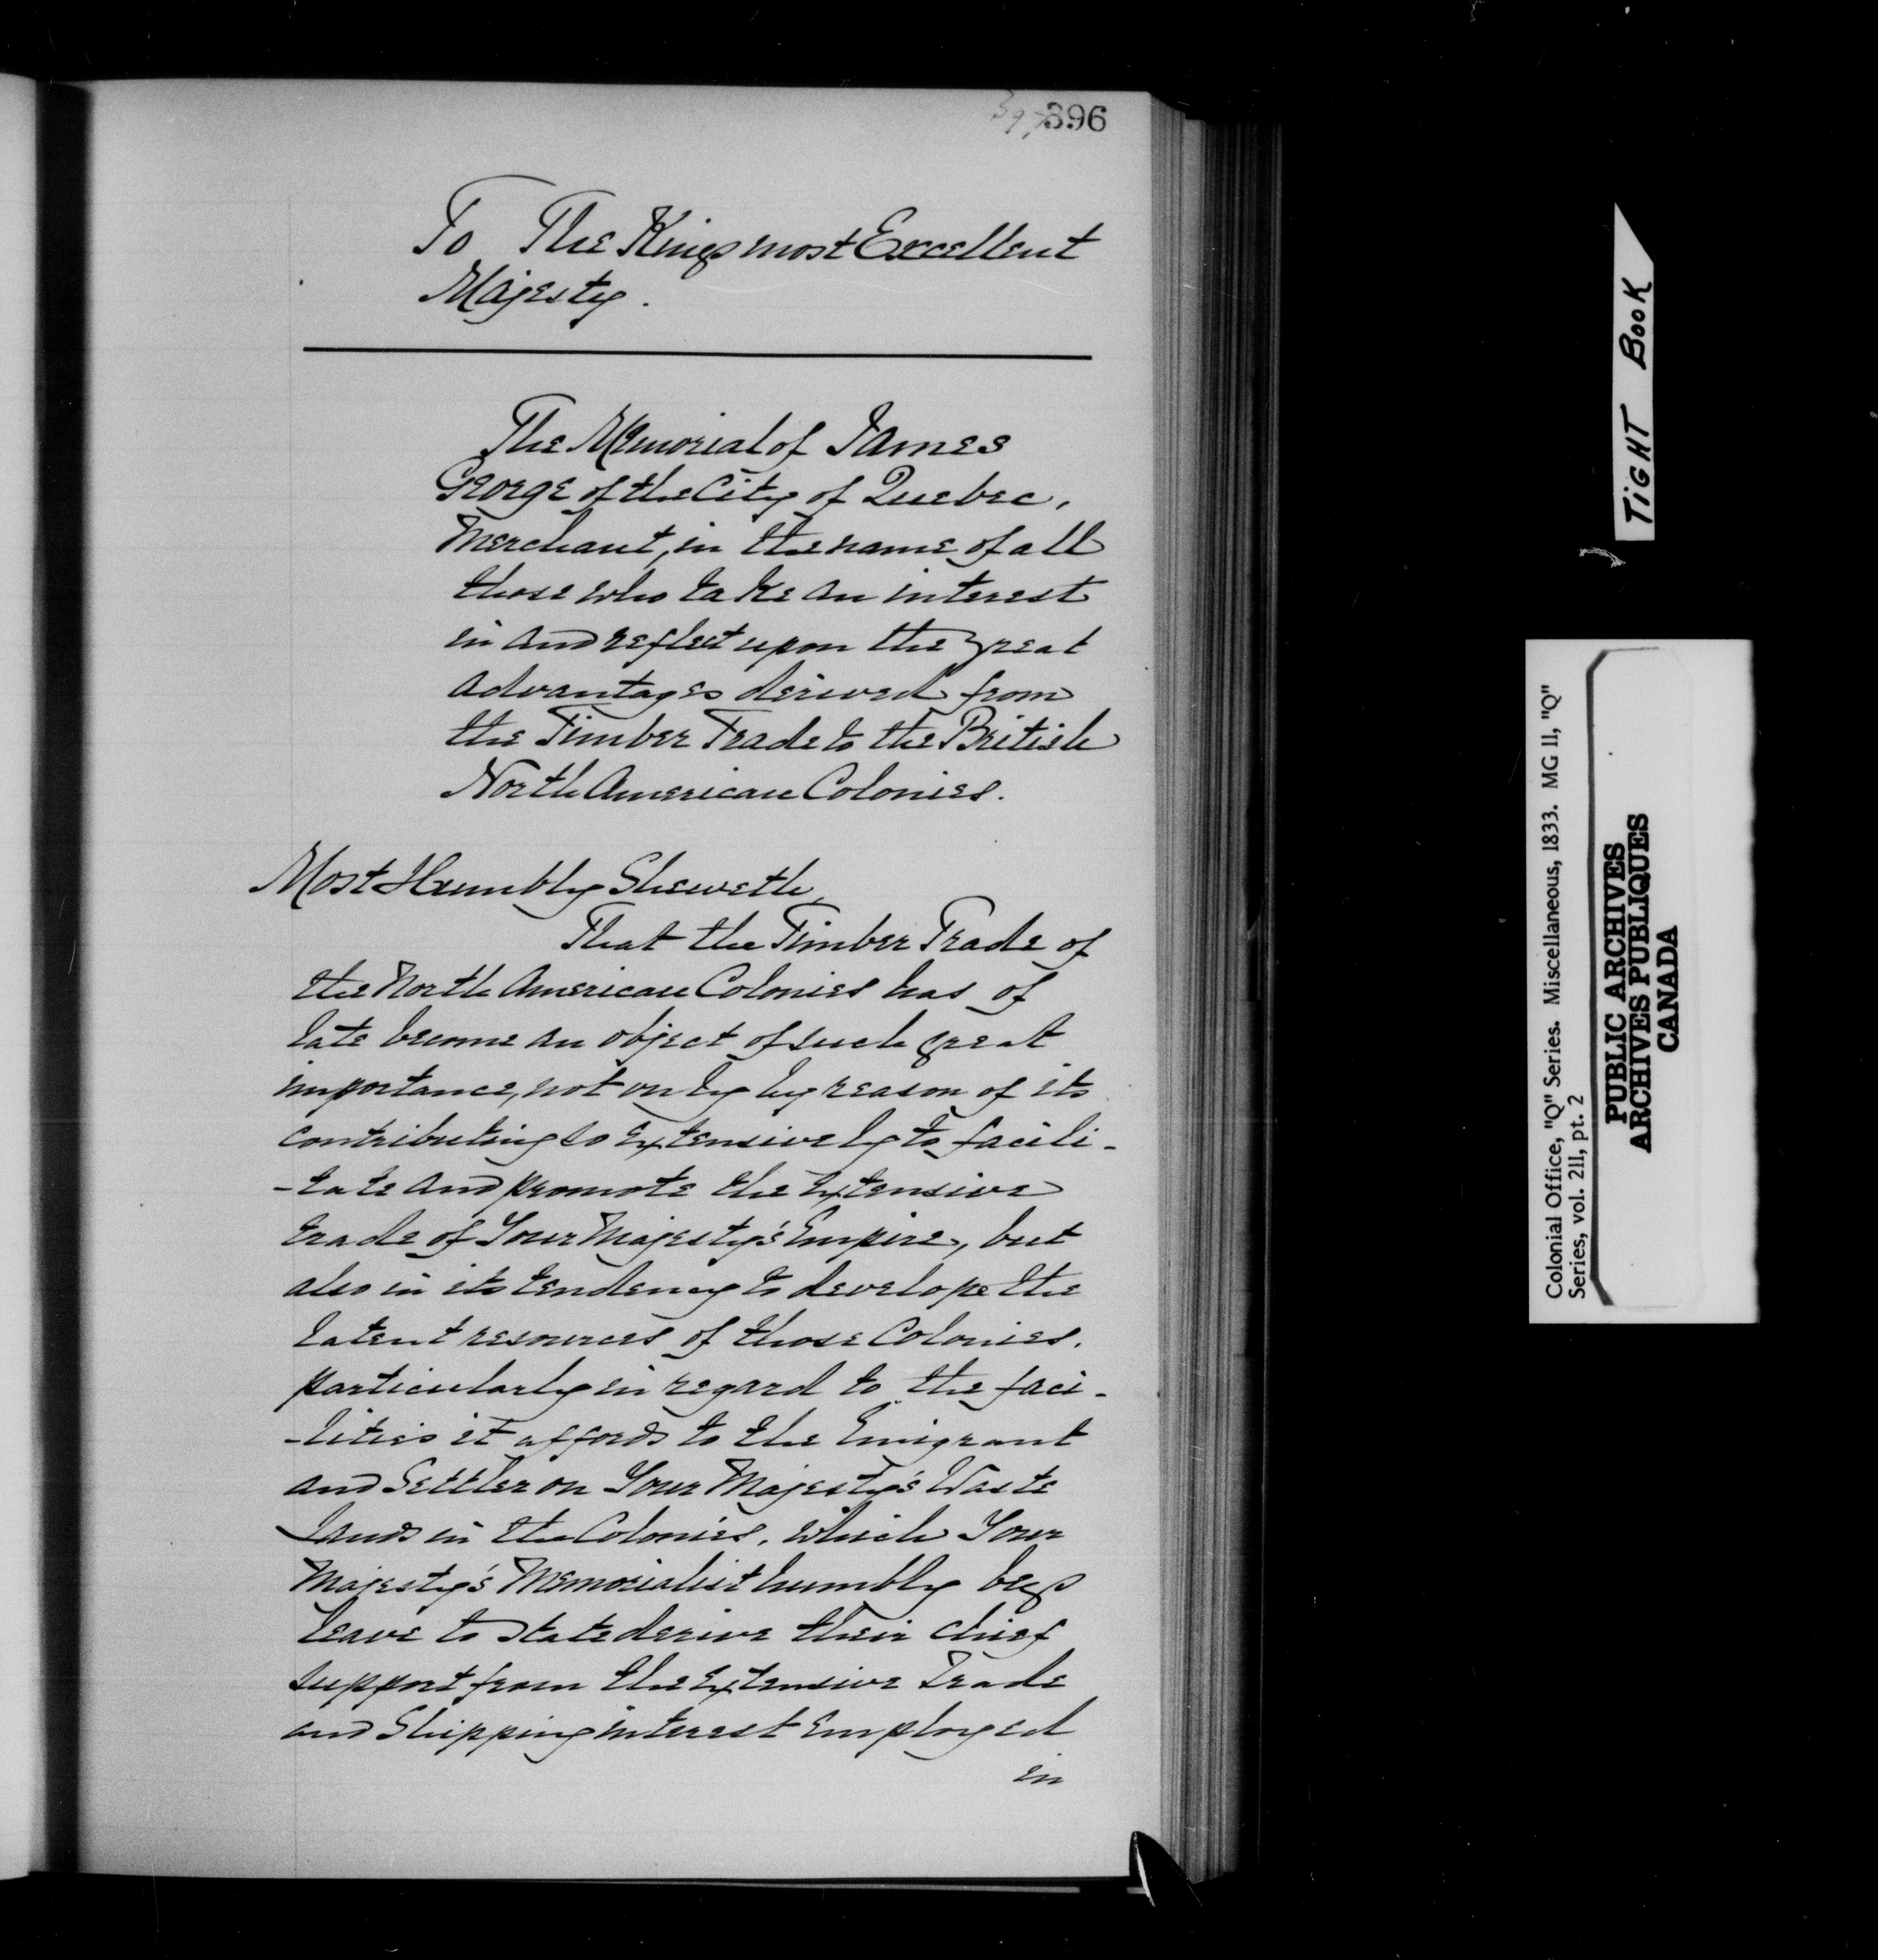 397 396
To The Kings most Excellent
Majesty.
The Memorial of James
George of the City of Quebec,
Merchant, in the name of all
those who take an interest
in and reflect upon the great
advantages derived from
the Timber Trade to the British
North American Colonies.
Most Humbly Sheweth,
That the Timber Trade of
the North American Colonies has of
late become an object of such great
importance, not only by reason of its
contributing so extensively to facili-
-tate and promote the extensive
trade of Your Majesty's Empire, but
also in its tendency to develope the
latent resources of those Colonies.
particularly in regard to the faci-
-lities it affords to the Emigrant
and Settler on Your Majesty's Waste
Lands in the Colonies, which Your
Majesty's Memorialist humbly begs
leave to state derive their chief
support from the extensive Trade
and Shipping interest employed
in
TIGHT BOOK
Colonial Office, "Q" Series. Miscellaneous, 1833. MG 11, "Q"
Series, vol. 211, pt. 2
PUBLIC ARCHIVES
ARCHIVES PUBLIQUES
CANADA